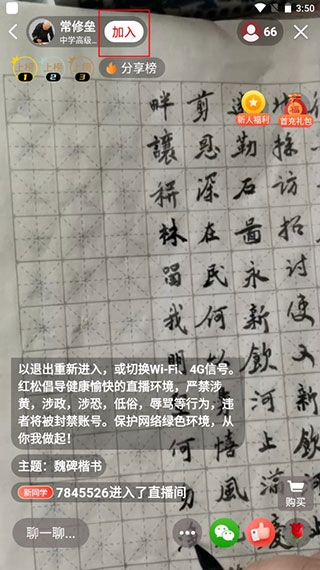 3:50
常修垒
中学高级...
加入
66
上榜 1
上榜 2
上榜 3
分享榜
新人福利
首充礼包
以退出重新进入，或切换Wi-Fi、4G信号。
红松倡导健康愉快的直播环境，严禁涉
黄，涉政，涉恐，低俗，辱骂等行为，违
者将被封禁账号。保护网络绿色环境，从
你我做起！
主题：魏碑楷书
新同学 7845526进入了直播间
购买
聊一聊...
採訪招討使又新
勤石圖永新飲河止
剪恩深在民何
畔讓耕林留我明